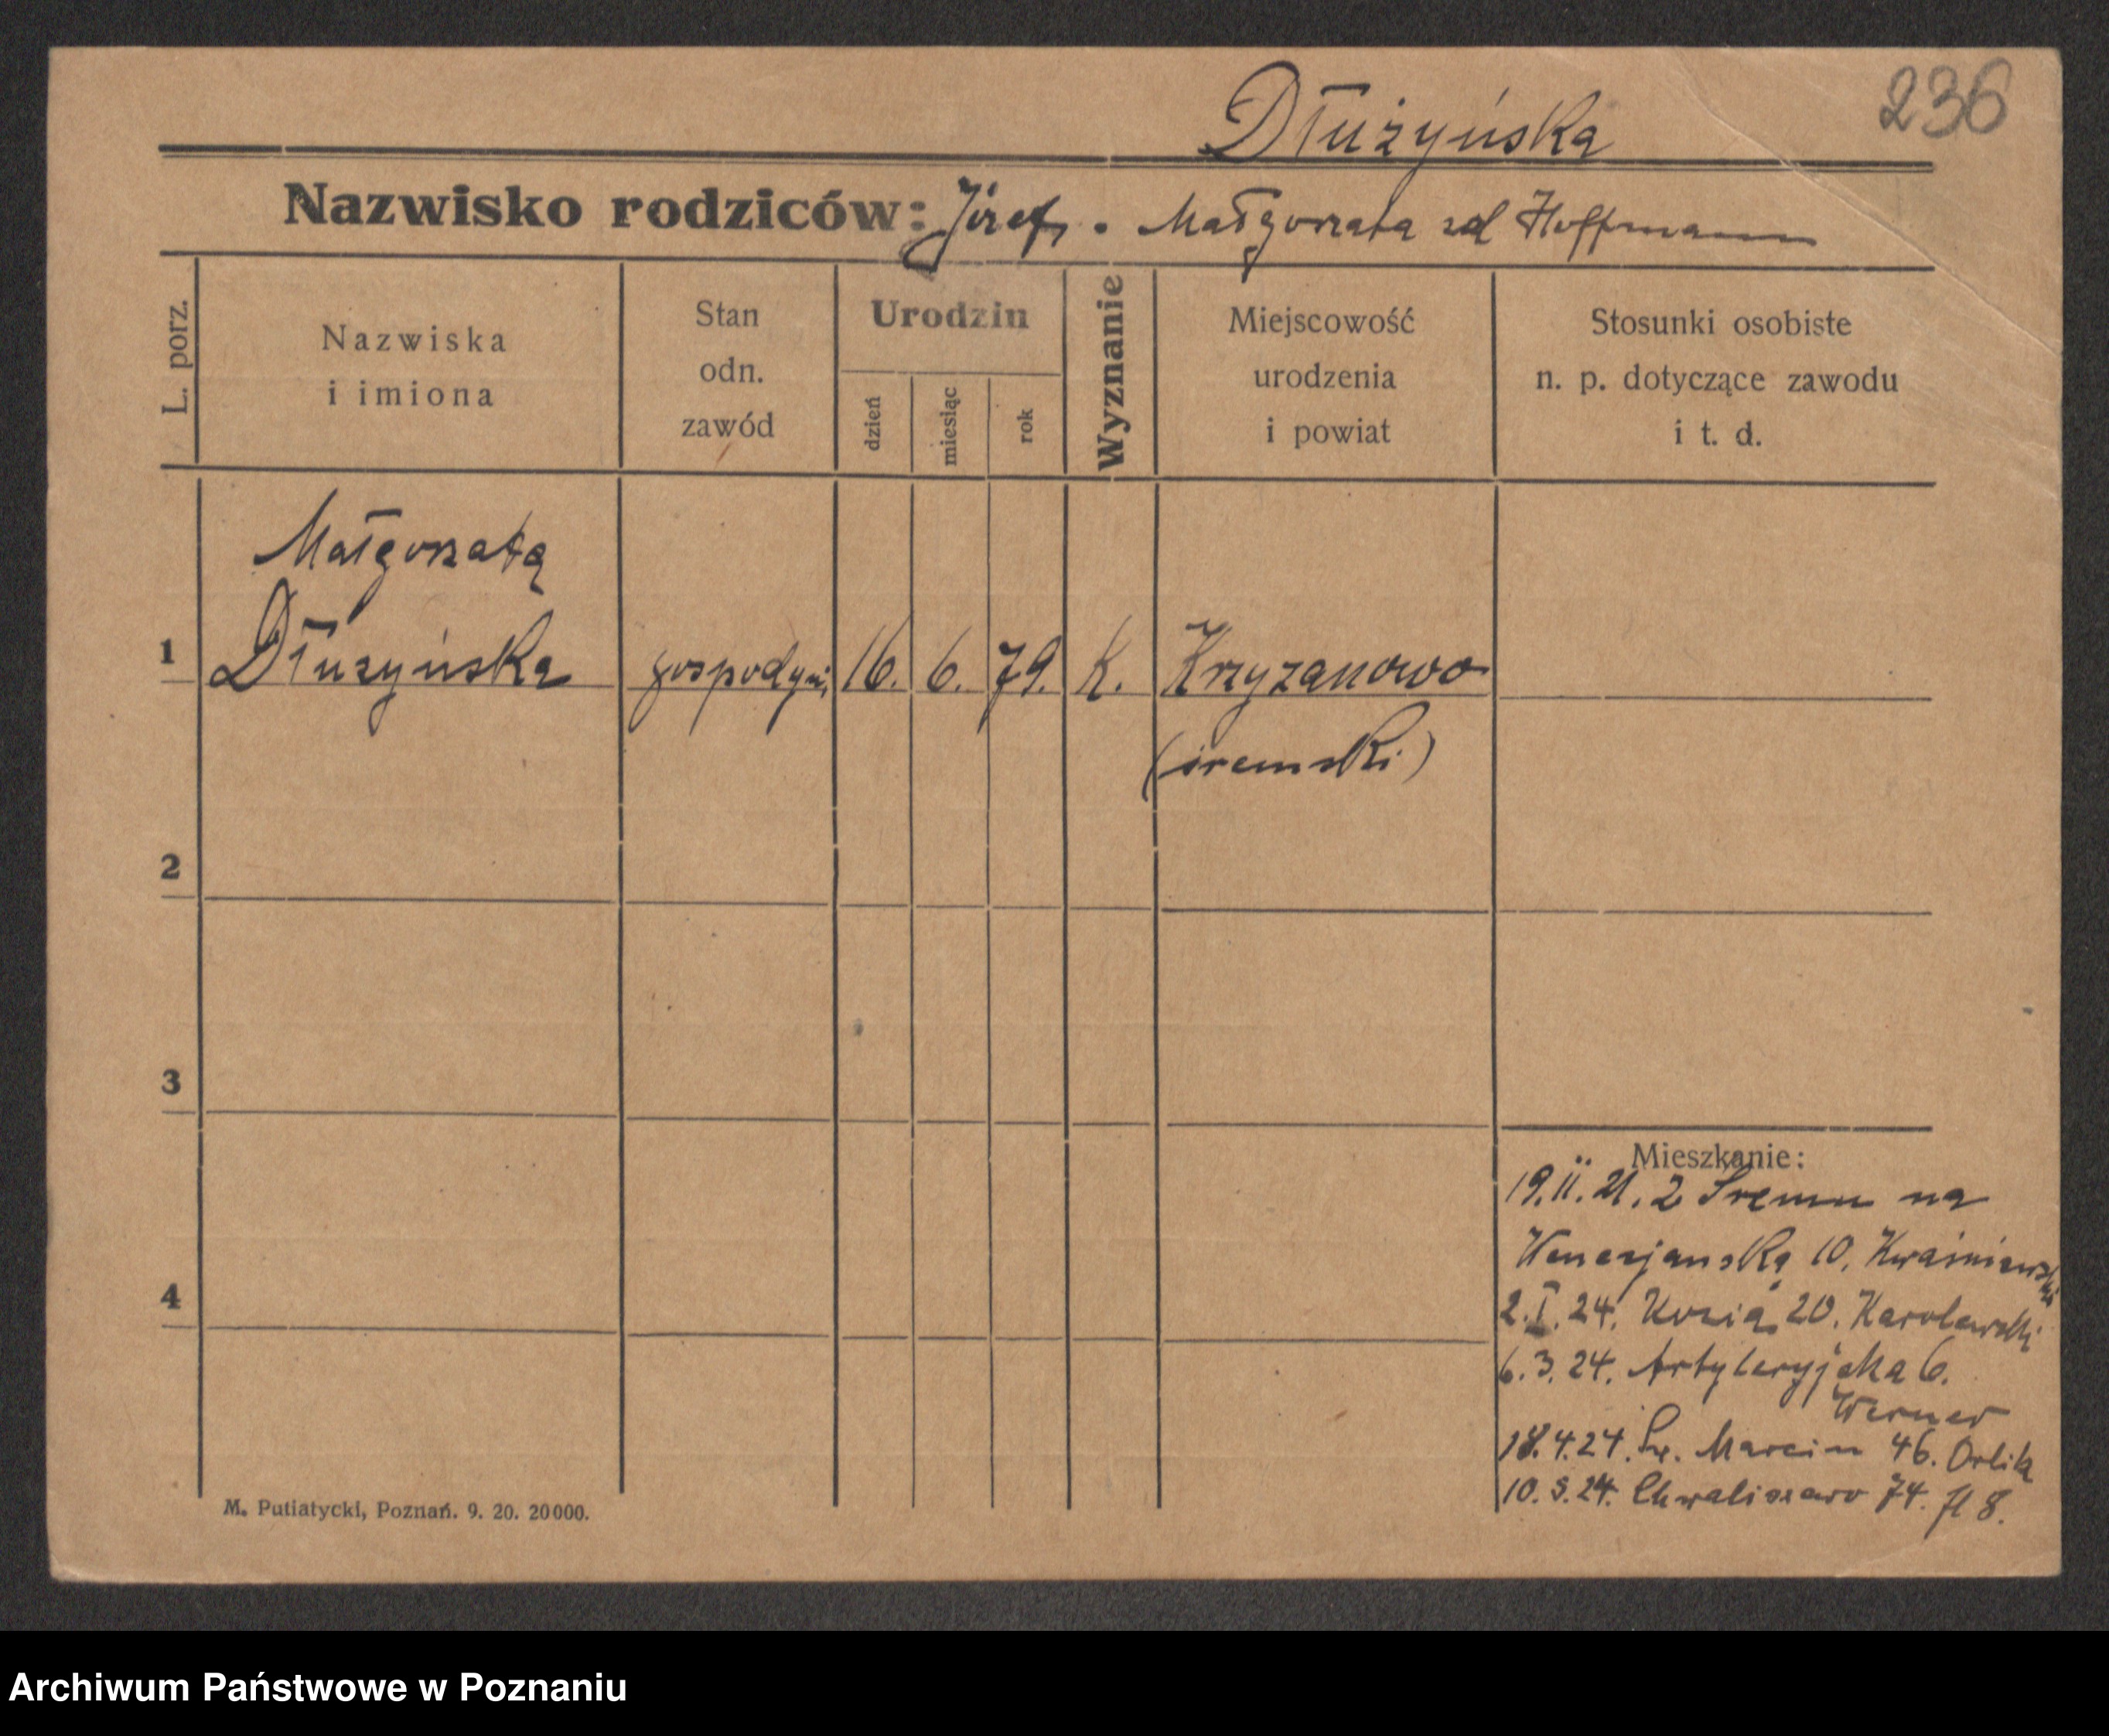 236
Dłużyńska
Nazwisko rodziców: Józef, . Małgorzata zd Hoffmann
L. porz.
Nazwiska
i imiona
Stan
odn.
zawód
Urodzin
dzień
miesiąc
rok
Wyznanie
Miejscowość
urodzenia
i powiat
Stosunki osobiste
n. p. dotyczące zawodu
i t. d.
Małgorzata
1 Dłuzyńska gospodyni 16. 6. 79. K. Krzyzanowo
(śremski)
2
3
4
Mieszkanie:
19.II.21. z Śremu na
Wenezjanską 10, Kwaśniewski
2.I.24. Kozia 20. Karolewski
6.3.24. Artyleryjska 6.
Werner
18.4.24. Św. Marcin 46. Orlik
10.5.24. Chwaliszewo 74. 8.
M. Putiatycki, Poznań. 9. 20. 20000.
Archiwum Państwowe w Poznaniu